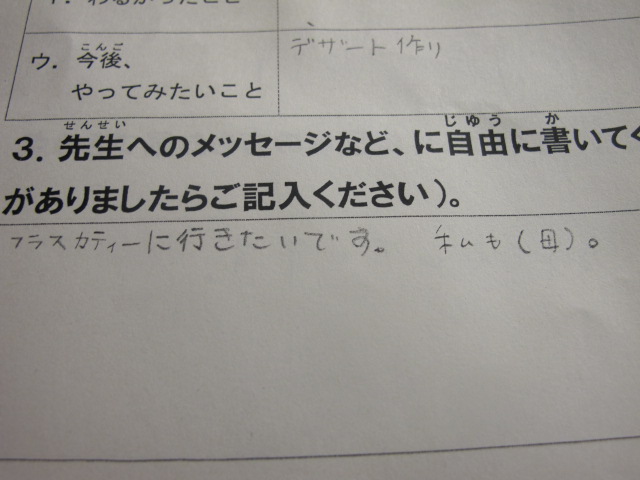 イ. わるかったこと
ウ. 今後、
こんご
やってみたいこと
デザート作り
せんせい じゆう か
3. 先生へのメッセージなど、に自由に書いてく
がありましたらご記入ください)。
フラスカティーに行きたいです。 私も(母)。